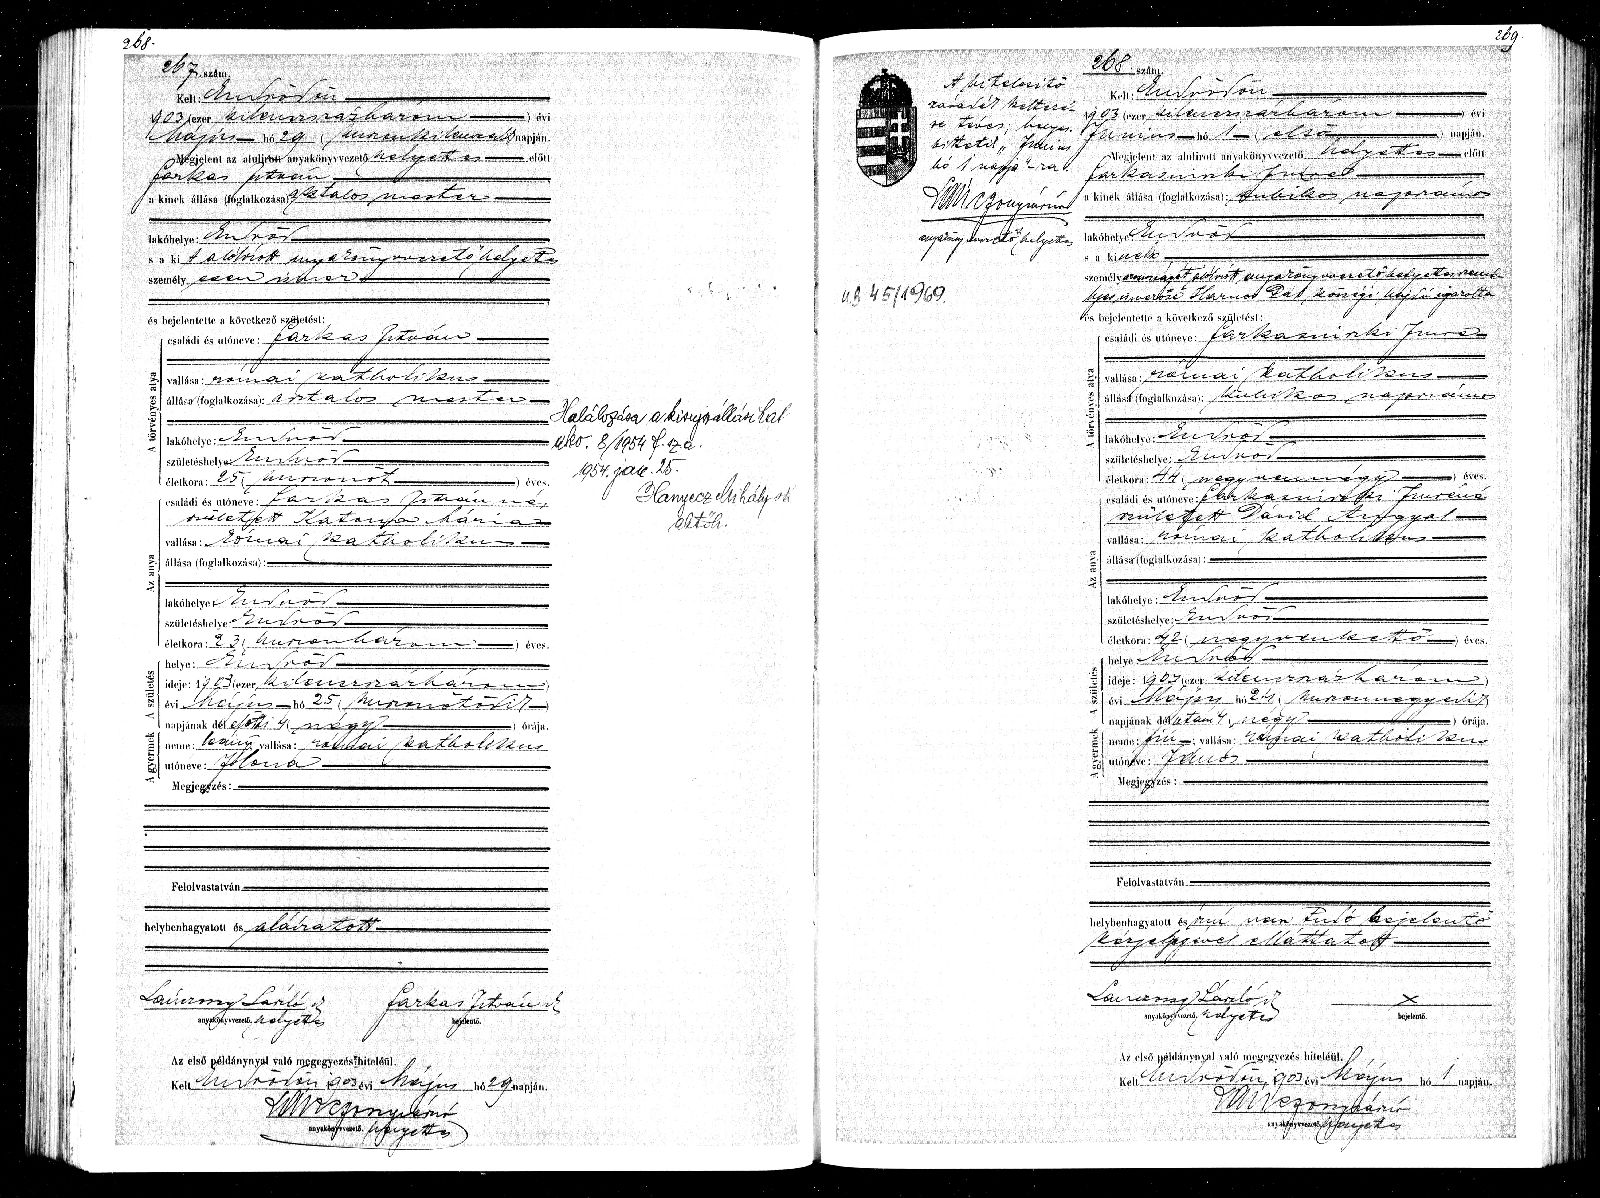 268.
267 szám.
Kelt: Endrődön
903 (ezer kilencszázhárom) évi
Május hó 29 (huszonkilencedik) napján.
Megjelent az alulirott anyakönyvvezető helyettes előtt
Farkas István
a kinek állása (foglalkozása): asztalos mester
lakóhelye: Endrőd
s a ki t alólirott anyakönyvvezető helyettes
személyesen ismer
és bejelentette a következő születést:
A törvényes atya
családi és utóneve: Farkas István
vallása: római katholikus
állása (foglalkozása): asztalos mester
lakóhelye: Endrőd
születéshelye: Endrőd
életkora: 25 (huszonöt) éves.
Az anya
családi és utóneve: Farkas Istvánné,
született Katona Mária
vallása: római katholikus
állása (foglalkozása):
lakóhelye: Endrőd
születéshelye: Endrőd
életkora: 23 (huszonhárom) éves.
A születés
helye: Endrőd
ideje: 1903 (ezer kilencszázhárom)
évi Május hó 25 (huszonötödik)
napjának délelőtti 4 (négy) órája.
A gyermek
neme: leány; vallása: római katholikus
utóneve: Ilona
Megjegyzés:
Felolvastatván
helybenhagyatott és aláiratott
László Farkas István
anyakönyvvezető, helyettes bejelentő.
Az első példánynyal való megegyezés hiteléül.
Kelt Endrődön, 903 évi Május hó 29 napján.
anyakönyvvezető, helyettes
Halálozása a kisujszállási hal
akv. 8/1954 f. sz a.
1954. jan. 25.
Hanyecz Mihály
269.
268 szám.
A hitelesitő
záradék kelteré-
re téves, helyes-
bittetik „Junius
hó 1 napjá"-ra.
anyakönyvvezető helyettes
45/1969.
Kelt: Endrődön
903 (ezer kilencszázhárom) évi
Junius hó 1 (első) napján.
Megjelent az alulirott anyakönyvvezető helyettes előtt
Farkasinszki Imre
a kinek állása (foglalkozása): kubikos napszámos
lakóhelye: Endrőd
s a kinek
személyazonosságát alólirott anyakönyvvezető helyettes szemé-
lyes ismerőse Harnos Pál községi hajdú igazolta
és bejelentette a következő születést:
A törvényes atya
családi és utóneve: Farkasinszki Imre
vallása: római katholikus
állása (foglalkozása): kubikos napszámos
lakóhelye: Endrőd
születéshelye: Endrőd
életkora: 44 (negyvennégy) éves.
Az anya
családi és utóneve: Farkasinszki Imréné
született Dávid Angyal
vallása: római katholikus
állása (foglalkozása):
lakóhelye: Endrőd
születéshelye: Endrőd
életkora: 42 (negyvenkettő) éves.
A születés
helye: Endrőd
ideje: 1903 (ezer kilencszázhárom)
évi Május hó 24 (huszonnegyedik)
napjának délutáni 4 (négy) órája.
A gyermek
neme: fiú; vallása: római katholikus
utóneve: János
Megjegyzés:
Felolvastatván
helybenhagyatott és irni nem tudó bejelentő
kézjegyével elláttatott
László x
anyakönyvvezető, helyettes bejelentő.
Az első példánynyal való megegyezés hiteléül.
Kelt Endrődön, 903 évi Május hó 1 napján.
anyakönyvvezető, helyettes